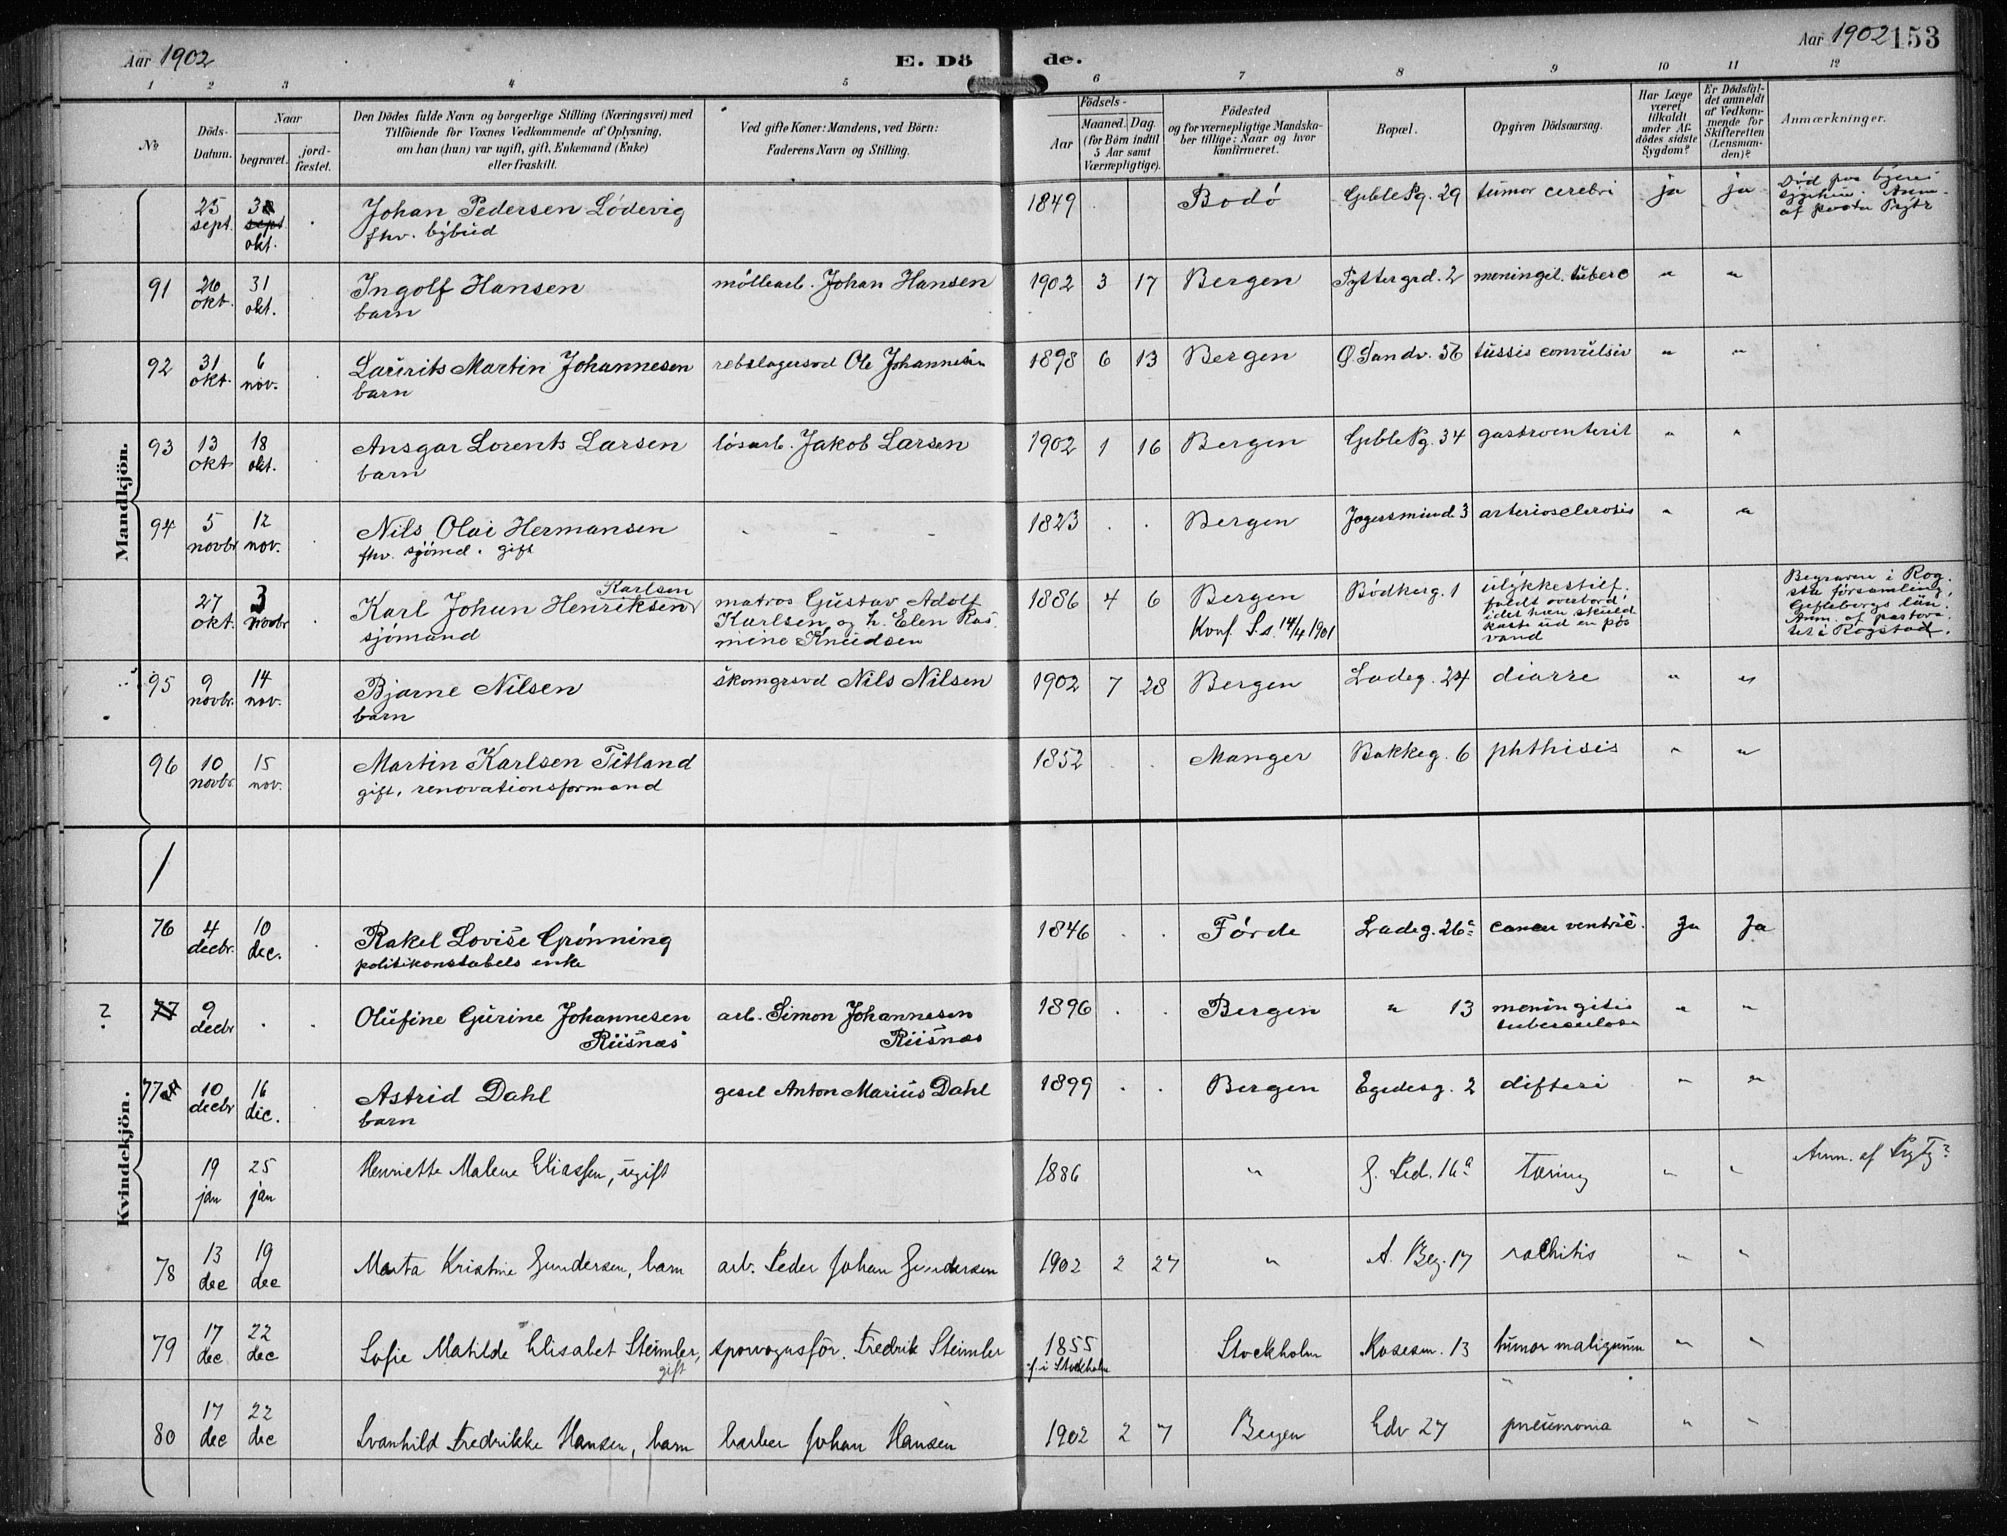 Aar 1902
E. Dö
de.
Aar 1902
153
1 2 3 4 5 6 7 8 9 10 11 12
No
Döds-Datum.
Naar
begravet.
jord-fæstet.
Den Dödes fulde Navn og borgerlige Stilling (Næringsvei) med
Tilföiende for Voxnes Vedkommende af Oplysning,
om han (hun) var ugift, gift, Enkemand (Enke)
eller fraskilt.
Ved gifte Koner: Mandens, ved Börn:
Faderens Navn og Stilling.
Födsels-
Aar
Maaned. Dag.
(for Börn indtil
5 Aar samt
Værnepligtige).
Födested
og for værnepligtige Mandska-
ber tillige: Naar og hvor
konfirmeret.
Bopæl.
Opgiven Dödsaarsag.
Har Læge
været
tilkaldt
under Af-
dödes sidste
Sygdom?
Er Dödsfal-
det anmeldt
af Vedkom-
mende for
Skifteretten
(Lensman-
den)?
Anmærkninger.
Mandkjön.
25 sept. 3 sept okt. Johan Pedersen Lödevig 1849 Bodö Geble Pg. 29 tumor cerebri ja ja Død paa byens
fhv. bybud
sygehus. Anm.
af
91 26 okt. 31 okt. Ingolf Hansen möllearb. Johan Hansen 1902 3 17 Bergen Pyttergrd. 2 meningit. tuberc " "
barn
92 31 okt. 6 nov. Laurits Martin Johannesen rebslagersvd Ole Johannesen 1898 6 13 Bergen Ø. Sandv. 56 tussis convulsiv " "
barn
93 13 okt 18 okt. Ansgar Lorents Larsen lösarb. Jakob Larsen 1902 1 16 Bergen Geble Pg. 34 gastroenterit " "
barn
94 5 novbr 12 nov. Nils Olai Hermansen - - - 1823 . . Bergen Jegersmind. 3 arteriosclerosis " "
fhv. sjömd. gift
27 okt. 3 novbr Karl Johan Henriksen Karlsen matros Gustav Adolf 1886 4 6 Bergen Bödkerg. 1 ulykkestilf.
sjömand
Karlsen og h. Elen Ras
mine Knudsen
Konf. S.s. 14/4 1901
faldt overbord,
idet han skulde
kaste ud en pös
vand
Begraven i Rog.
sta församling,
Gefleborgs län.
Anm. af pastora-
tet i Rogstad.
95 9 novbr. 14 nov. Bjarne Nilsen skomgrsvd Nils Nilsen 1902 7 28 Bergen Ladeg. 24 diarre " "
barn
96 10 novbr. 15 nov. Martin Karlsen Titland 1852 . . Manger Bakkeg. 6 phthisis " "
gift, renovationsformand
Kvindekjön.
76 4 decbr. 10 dec. Rakel Lovise Grönning 1846 . . Förde Ladeg. 26a cancer ventric. Ja Ja
politikonstabels enke
? 77 9 decbr . . Olufine Gurine Johannesen arb. Simon Johannesen 1896 . . Bergen " 13 meningitis " "
Riisnæs Riisnæs tuberculosa
77 10 decbr 16 dec. Astrid Dahl gesel Anton Marius Dahl 1899 . . Bergen Egedesg. 2 difteri " "
barn
19 jan 25 jan Henriette Malene Eliassen, ugift 1886 " Ped. 16a Tæring " " Anm. af
78 13 dec 19 dec Marta Kristine Gundersen, barn arb. Peder Johan Gundersen 1902 2 27 " A. Beg. 17 rachitis " "
79 17 dec 22 dec Sofie Matilde Elisabet Steimler, gift sporvognsför. Fredrik Steimler 1855 Stockholm Rosesm. 13 tumor malignum " "
f. i Stockholm
80 17 dec 22 dec Svanhild Fredrikke Hansen, barn barber Johan Hansen 1902 2 7 Bergen Edv 27 pneumonia " "